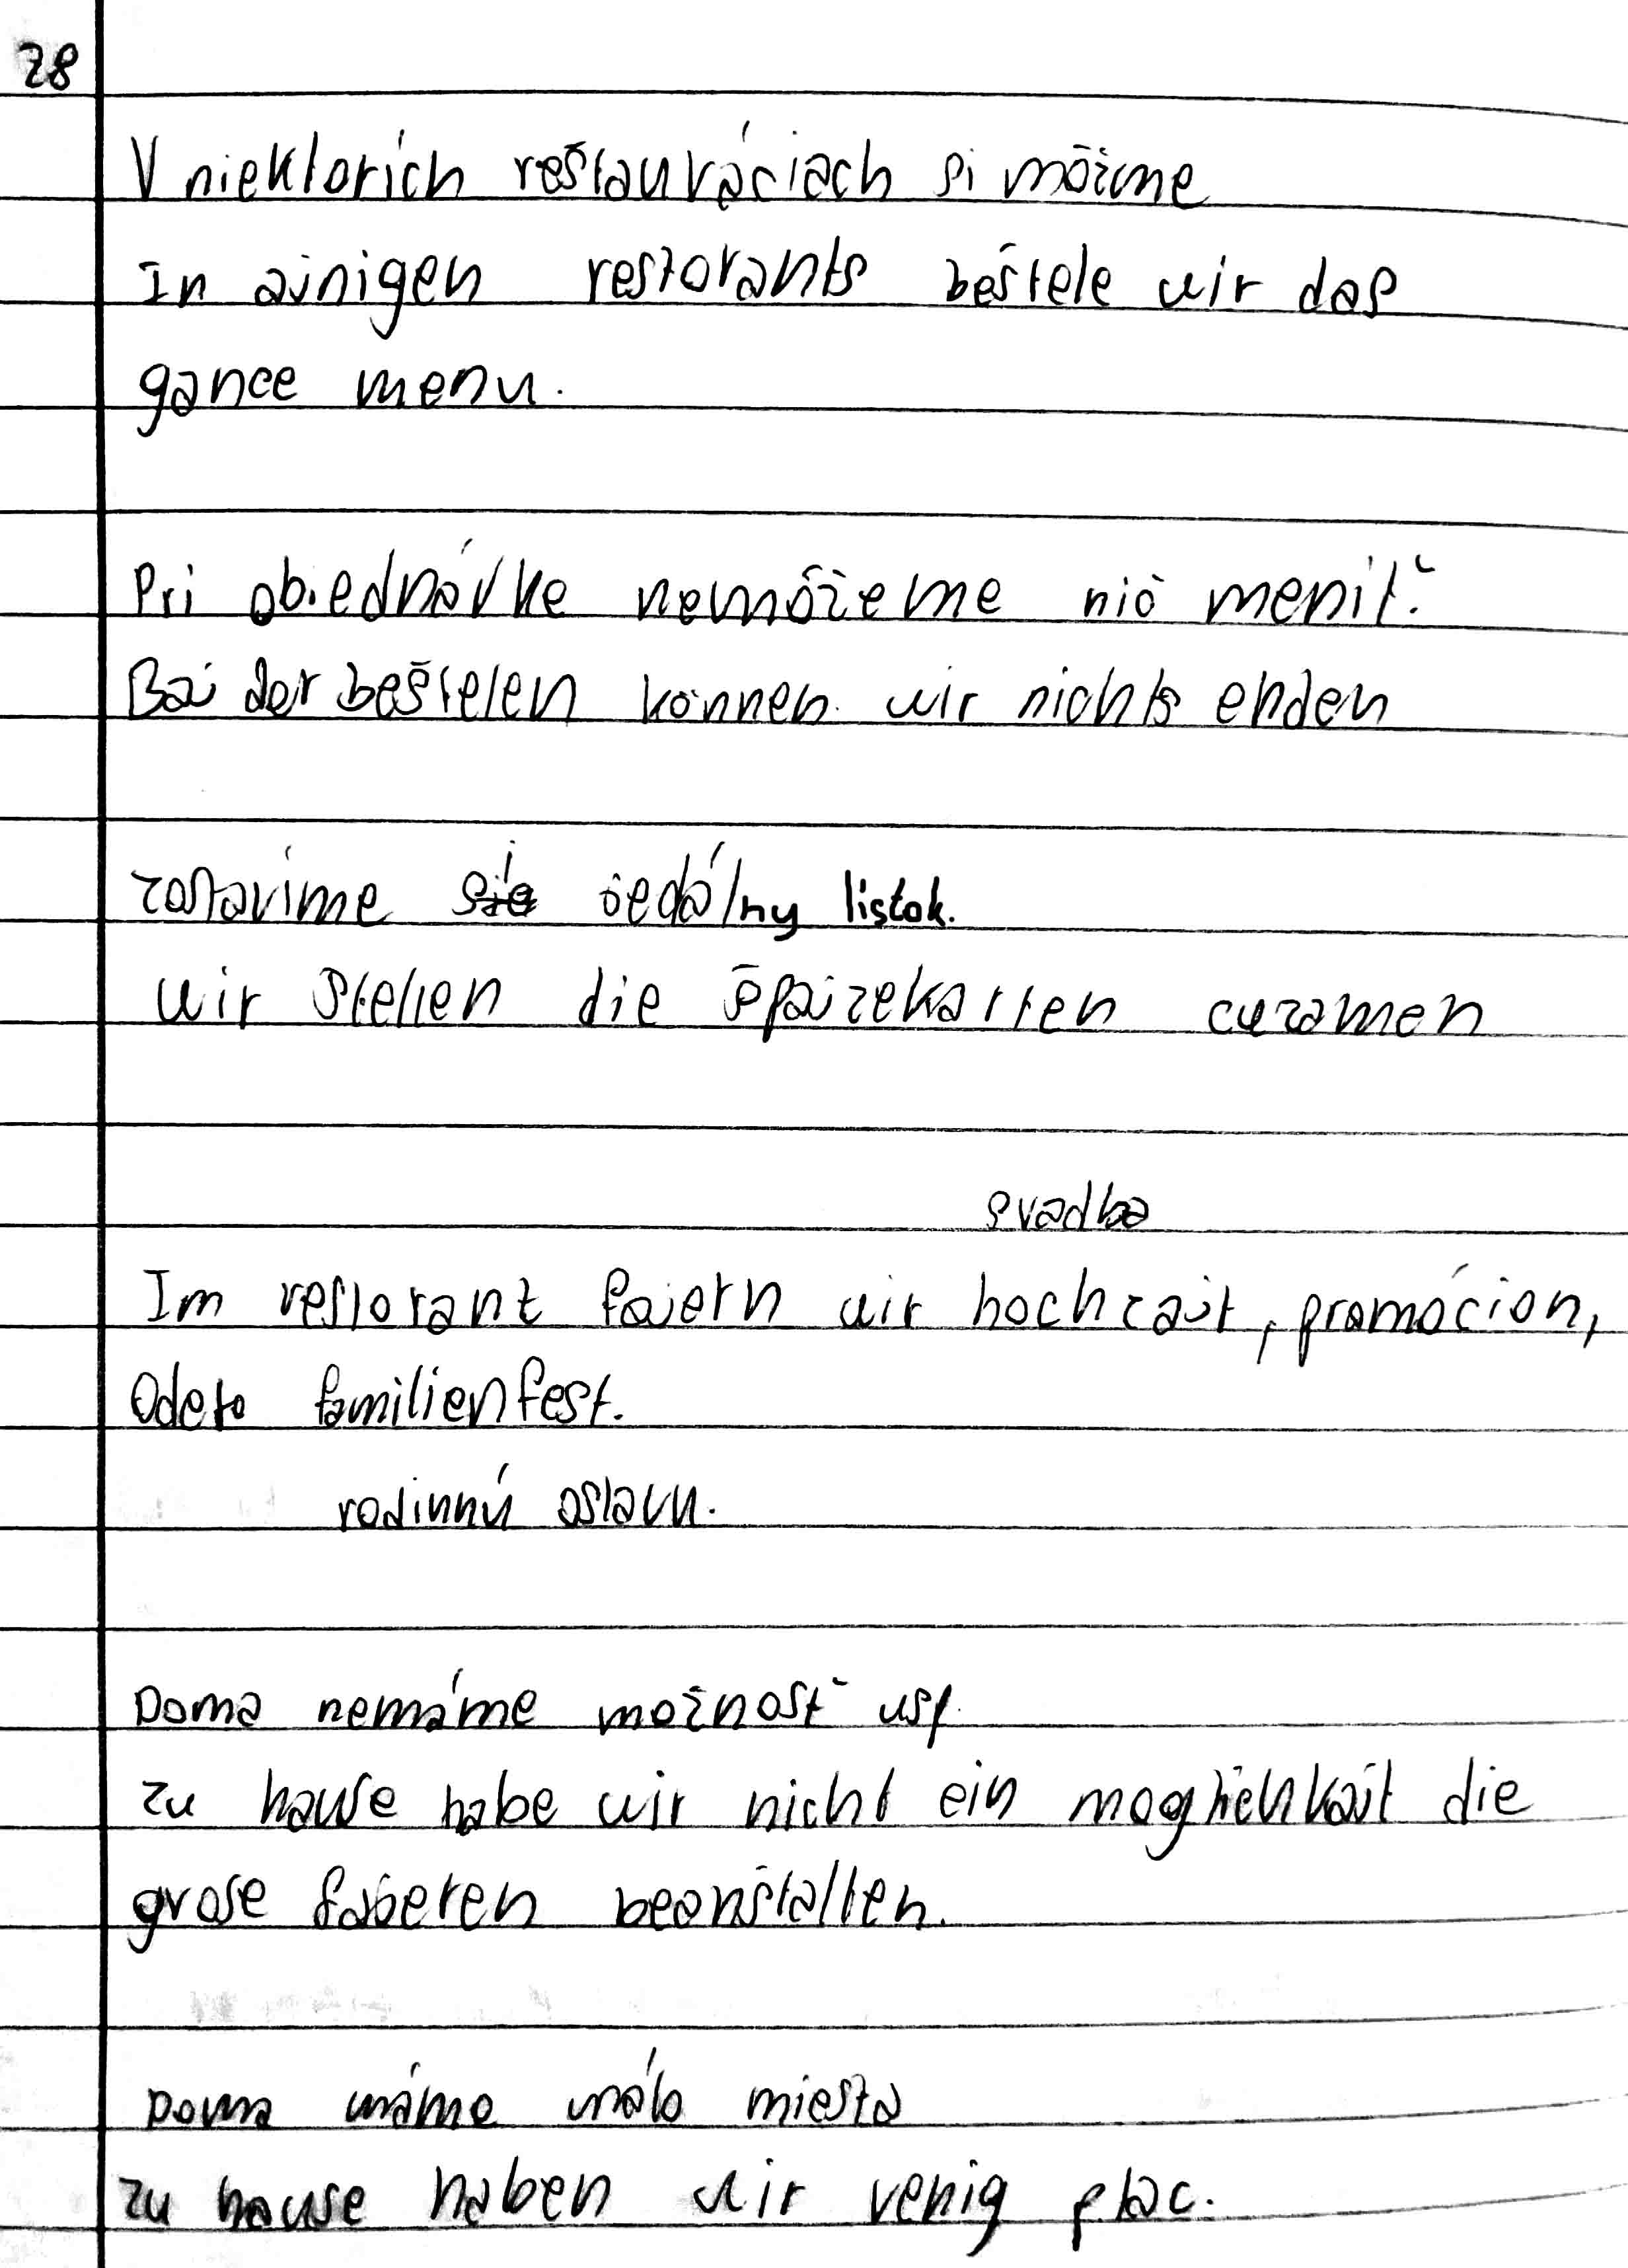 28
V niektorích reštauráciach si môžme
In ainigen restorants beštele wir das
gance menu.
Pri obiednávke nemôžeme nič meniť.
Bai der beštelen können wir nichts enden
zostavíme jedálny listok.
Wir stellen die špaizekarten cuzamen
svadba
Im restorant faiern wir hochzait, promócion,
Oder familienfest.
rodinnú oslavu.
Doma nemáme možnosť usp.
zu hause habe wir nicht ein moglichkait die
grose faieren beanštalten.
Doma máme málo miesta
zu hause haben wir venig plac.